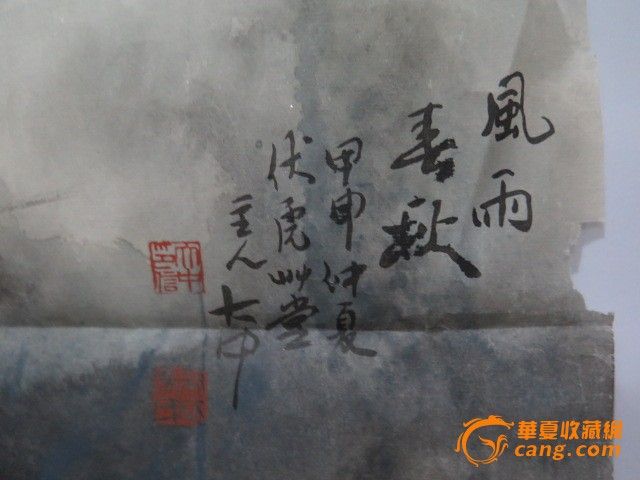 風雨
春秋
甲申仲夏
伏虎艸堂
主人
大中
華夏收藏網
cang.com